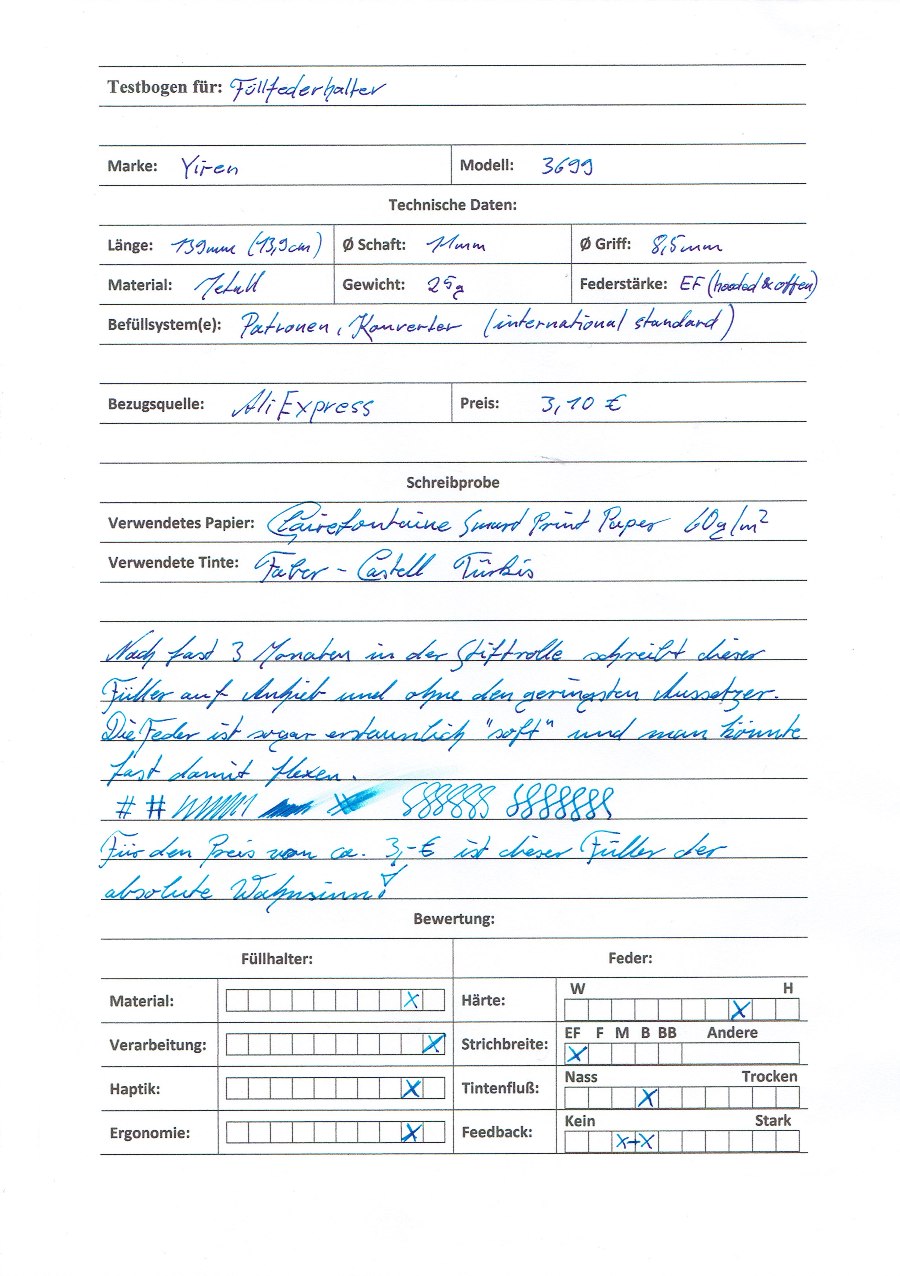 Testbogen für: Füllfederhalter
Marke: Yiren Modell: 3699
Technische Daten:
Länge: 139mm (13,9cm) Ø Schaft: 11mm Ø Griff: 8,5mm
Material: Metall Gewicht: 25g Federstärke: EF (hooded & offen)
Befüllsystem(e): Patronen, Konverter (international standard)
Bezugsquelle: AliExpress Preis: 3,10 €
Schreibprobe
Verwendetes Papier: Clairefontaine Smart Print Paper 60g/m²
Verwendete Tinte: Faber-Castell Türkis
Nach fast 3 Monaten in der Stiftrolle schreibt dieser
Füller auf Anhieb und ohne den geringsten Aussetzer.
Die Feder ist sogar erstaunlich "soft" und man könnte
fast damit flexen.
# #
Für den Preis von ca. 3,-€ ist dieser Füller der
absolute Wahnsinn!
Bewertung:
Füllhalter: Feder:
W H
Material: X Härte: X
EF F M B BB Andere
Verarbeitung: X Strichbreite: X
Nass Trocken
Haptik: X Tintenfluß: X
Kein Stark
Ergonomie: X Feedback: X-X